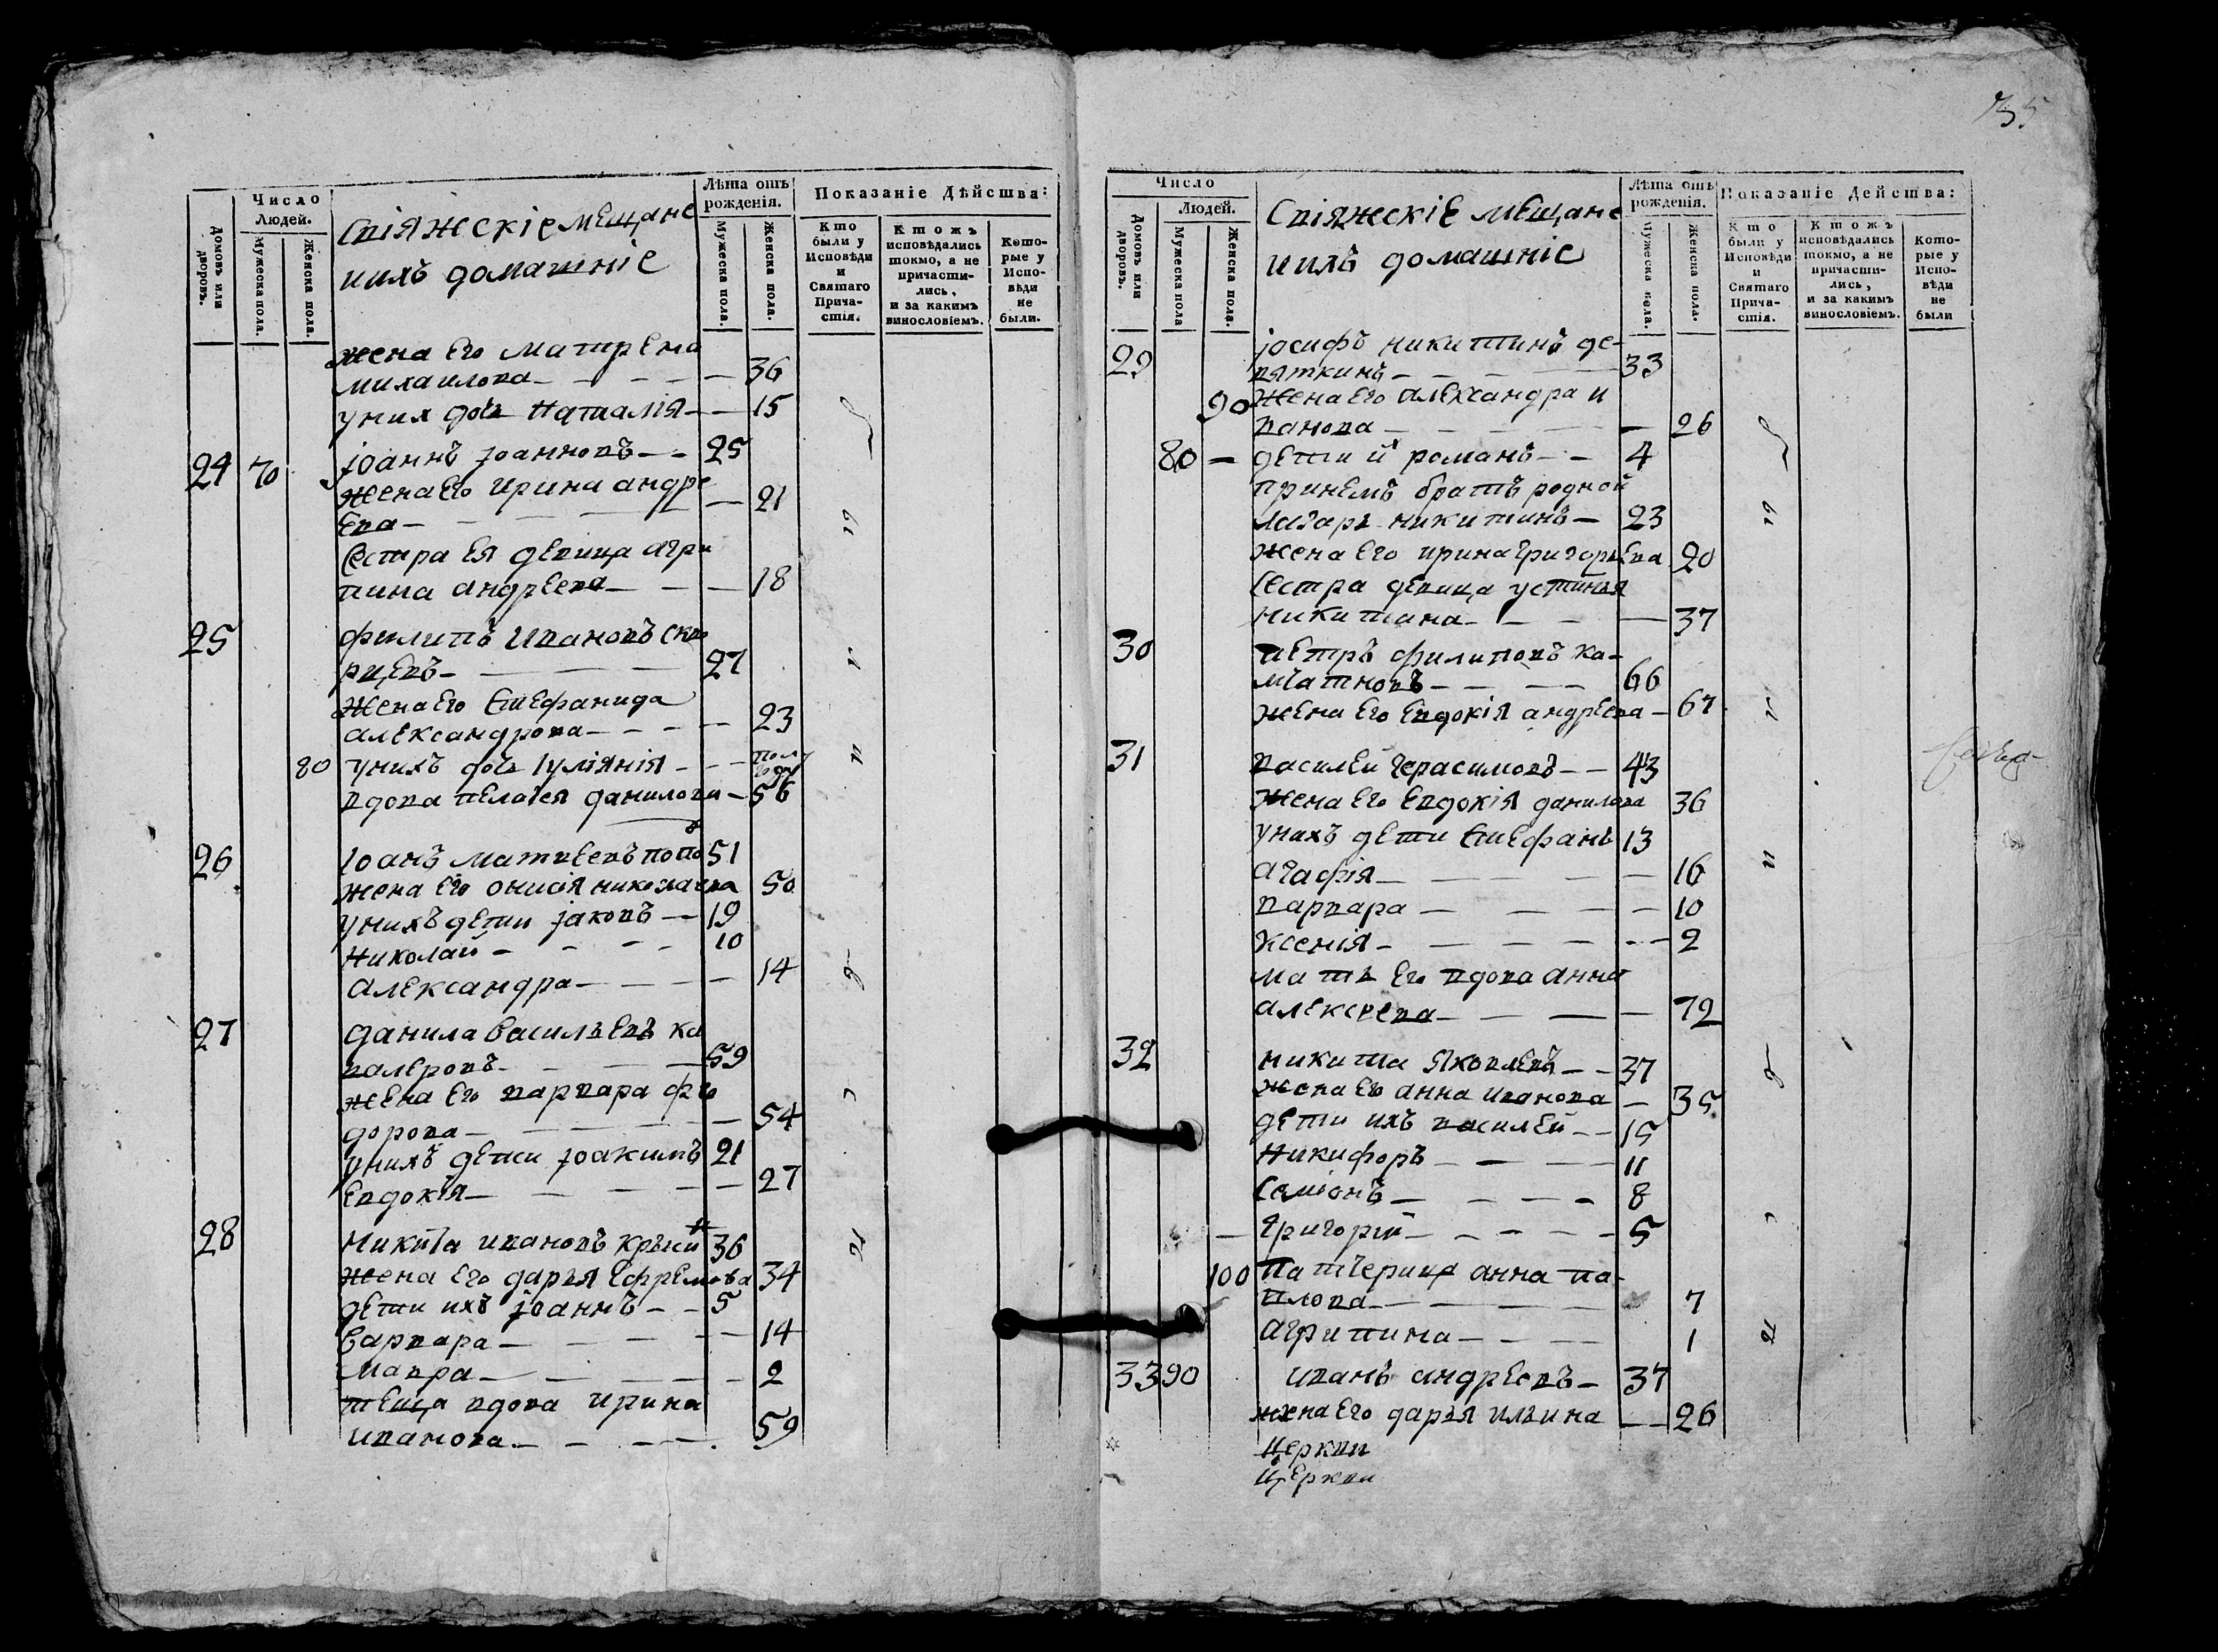 735
Число
Людей.
Домовъ или дворовъ.
Мужеска пола.
Женска пола.
Свіяжскіе мещане
и ихъ домашніе
Лѣта отъ рожденія.
Мужеска пола.
Женска пола.
Показаніе Дѣйства:
Кто были у Исповѣди и Святаго Причастія.
Ктожъ исповѣдались токмо, а не причастились, и за какимъ винословіемъ.
Которые у Исповѣди не были.
жена его матрена
михаилова - - - - 36
у них дочь Наталія - - 15
24 70 іоаннъ іоанновъ - - 25
жена его ирина андре
ева - - - - 21
сестра ея девица агри
пина андреева - - - 18
25 филипъ ивановъ скво
рцевъ - - - 27
жена его стефанида
александрова - - - - 23
80 у нихъ дочь іуліянія - - - пол году
вдова пелагея данилова - 56
26 іоанъ матвеевъ попо 51
жена его онисія николаева 50
у нихъ дети іаковъ - 19
Николай - - - - 10
александра - - - - 14
27 данила васильевъ ка
валеровъ - - - 59
жена его варвара фео
дорова - - - - 54
у нихъ дети іоакимъ 21
евдокія - - - - 27
28 Никита ивановъ крысин 36
жена его дарья ефремова 34
дети ихъ іоаннъ - - 5
варвара - - - - 14
мавра - - - - 2
теща вдова ирина
иванова - - - - 59
Число
Людей.
Домовъ или дворовъ.
Мужеска пола
Женска пола.
Свіяжскіе мещане
и ихъ домашніе
Лѣта отъ рожденія.
Мужеска пола.
Женска пола.
Показаніе Действа:
Кто были у Исповѣди и Святаго Причастія.
Ктожъ исповѣдались токмо, а не причастились, и за какимъ винословіемъ.
Которые у Исповѣди не были
29 іосифъ никитинъ де-
вяткинъ - - - 33
90 жена его александра и
ванова - - - - 26
80 - дети их романъ - - 4
при немъ братъ родной
лазарь никитинъ - 23
жена его ирина григорьева 20
сестра девица устинья
никитина - - - - 37
30 петръ филиповъ ка-
матновъ - - - 66
жена его евдокія андреева - 67
31 василей герасимовъ - - 43
жена его евдокія данилова 36
у нихъ дети стефанъ 13
агафія - - - - 16
варвара - - - - 10
ксенія - - - - 2
мать его вдова анна
алексеева - - - - 72
32 никита яковлевъ - - 37
жена его анна иванова - 35
дети ихъ василей - - 15
Никифоръ - - - 11
семіонъ - - - - 8
- григорій - - - - 5
100 патчерица анна па-
влова - - - - 7
агрипина - - - 1
33 90 иванъ андреевъ - 37
жена его дарья ильина - - 26
Церкви
Церкви